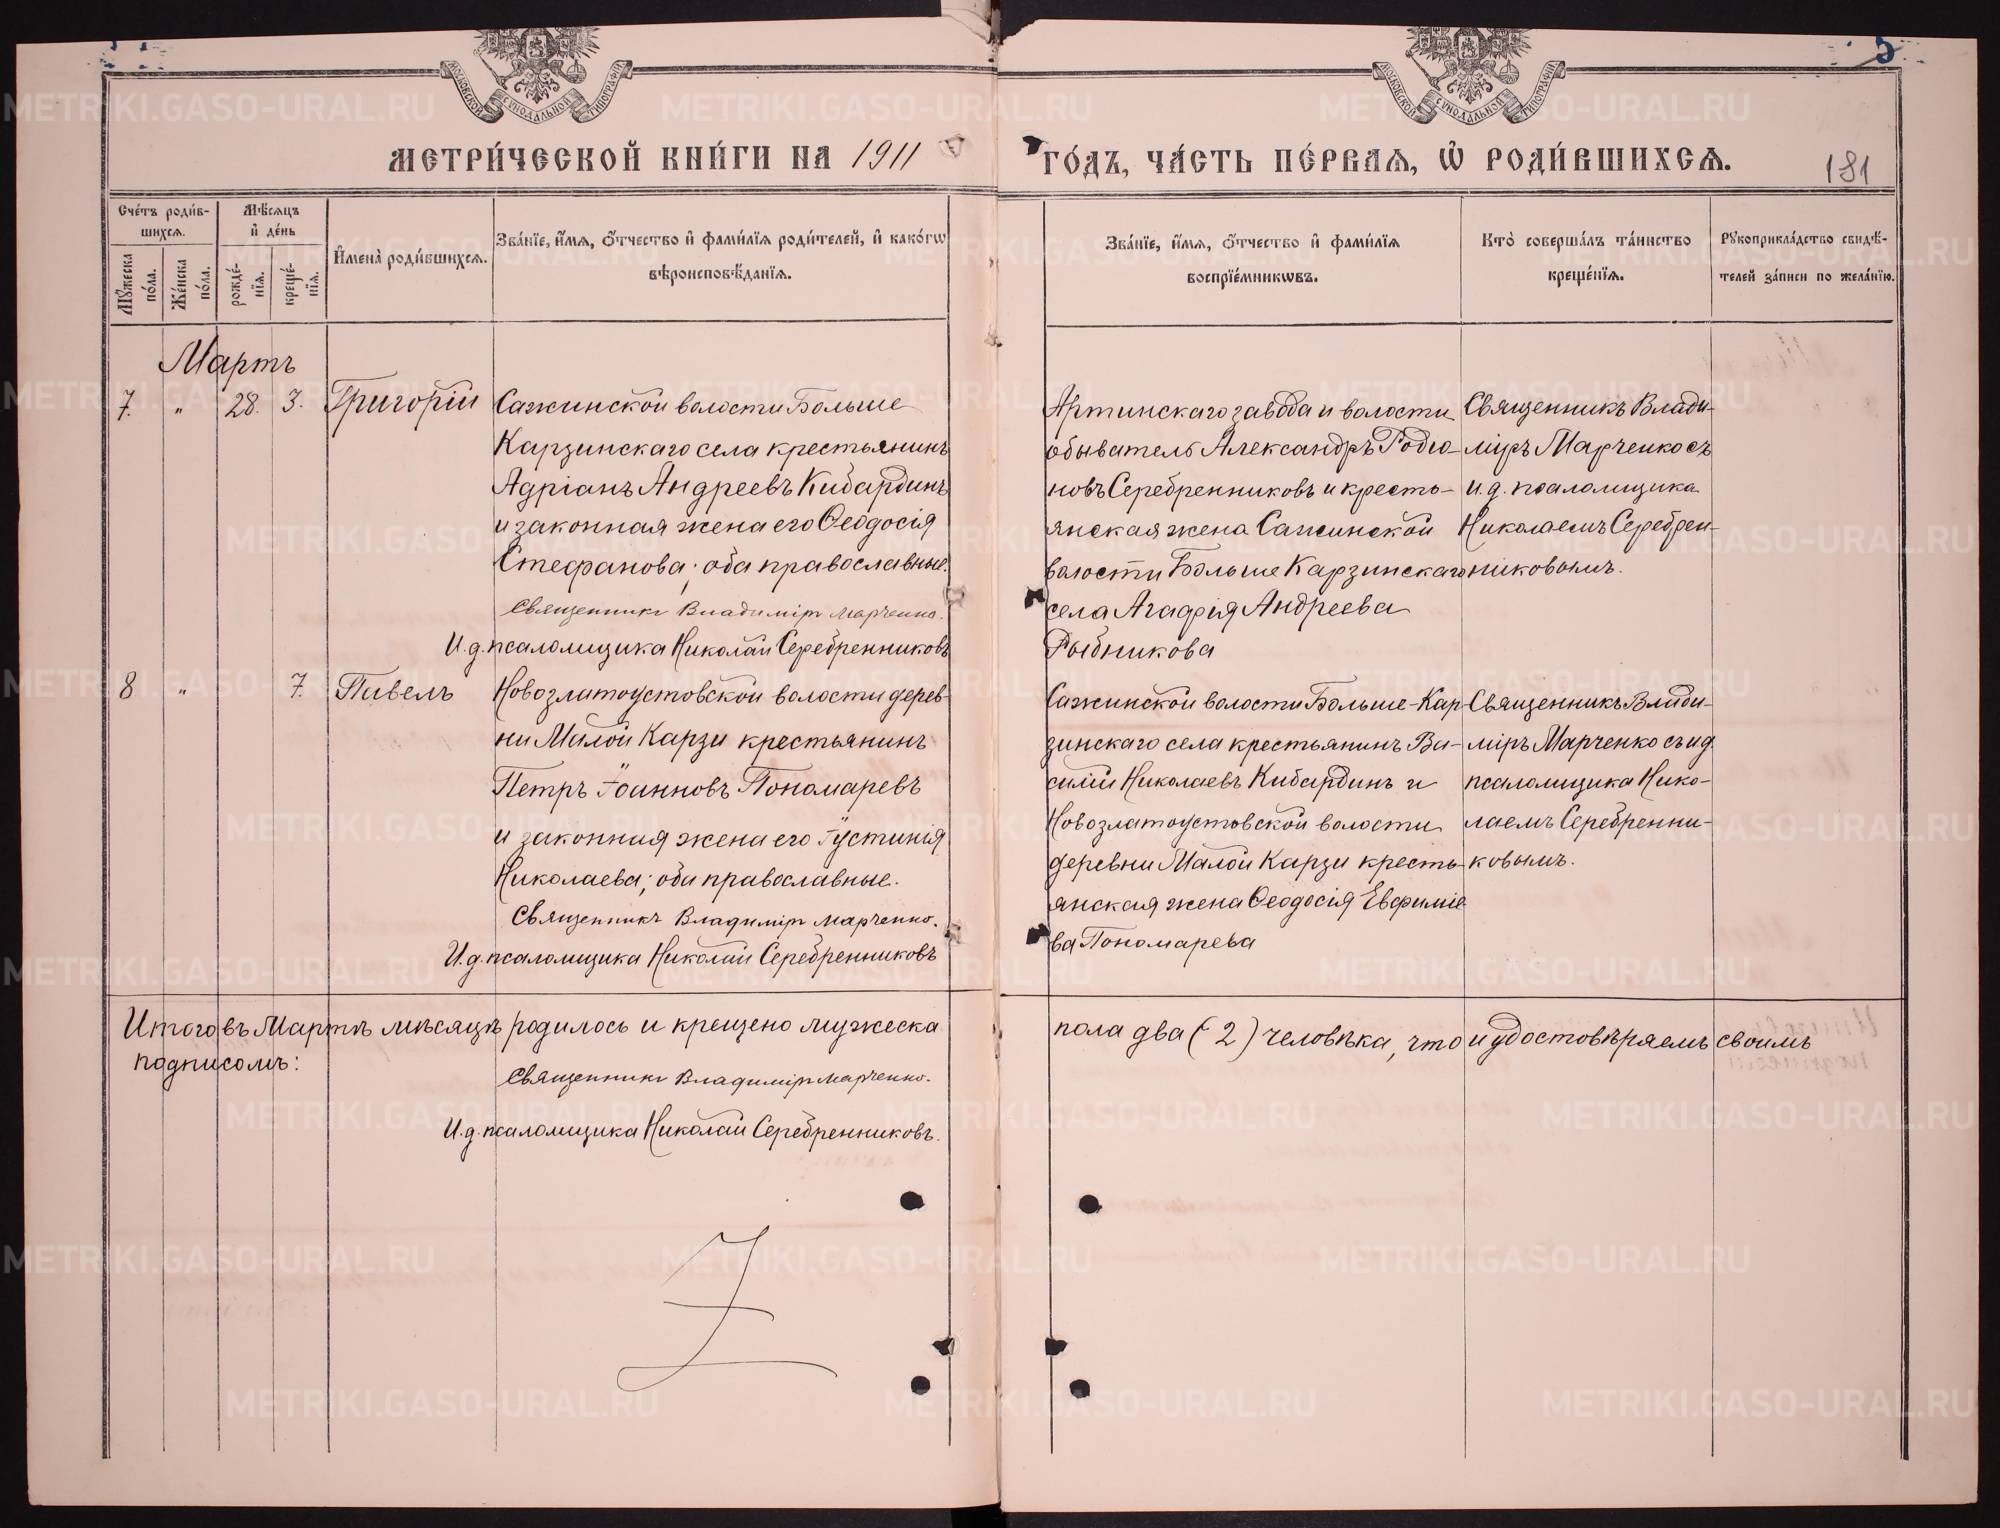 МОСКОВСКОЙ СѴНОДАЛЬНОЙ ТИПОГРАФІИ
МОСКОВСКОЙ СѴНОДАЛЬНОЙ ТИПОГРАФІИ
МЕТРИ́ЧЕСКОЙ КНИ́ГИ НА 1911
ГО́ДЪ, ЧА́СТЬ ПЕ́РВАЯ, Ѡ҆ РОДИ́ВШИХСЯ.
181
Сче́тъ роди́в-
шихся.
Мѣ́сяцъ
и҆ де́нь
Мꙋ́жеска
по́ла.
Же́нска
по́ла.
рожде́-
нїя.
креще́-
нїя.
И҆мена̀ роди́вшихся.
Зва́нїе, и҆́мя, ѻ҆́тчество и҆ фами́лїя роди́телей, и҆ како́гѡ
вѣроисповѣ́данїя.
Зва́нїе, и҆́мя, ѻ҆́тчество и҆ фами́лїя
воспрїе́мникѡвъ.
Кто̀ соверша́лъ та́инство
креще́нїя.
Рꙋкоприкла́дство свидѣ́-
телей за́писи по жела́нїю.
Мартъ
7. " 28. 3. Григорій
Сажинской волости Больше
Карзинскаго села крестьянинъ
Адріанъ Андреевъ Кибардинъ
и законная жена его Ѳеодосія
Стефанова; оба православные.
Священникъ Владиміръ Марченко.
И.д. псаломщика Николай Серебренниковъ
Артинскаго завода и волости
обыватель Александръ Родіо-
новъ Серебренниковъ и кресть-
янская жена Сажинской
волости Больше Карзинскаго
села Агафія Андреева
Рыбникова
Священникъ Влади-
міръ Марченко съ
и.д. псаломщика
Николаемъ Серебрен-
никовымъ.
8. " 7. Павелъ
Новозлатоустовской волости дерев-
ни Малой Карзи крестьянинъ
Петръ Іоанновъ Пономаревъ
и законная жена его Іустинія
Николаева; оба православные.
Священникъ Владиміръ Марченко.
И.д. псаломщика Николай Серебренниковъ
Сажинской волости Больше-Кар-
зинскаго села крестьянинъ Ва-
силій Николаевъ Кибардинъ и
Новозлатоустовской волости
деревни Малой Карзи кресть-
янская жена Ѳеодосія Евфиміе-
ва Пономарева
Священникъ Влади-
міръ Марченко съ и.д.
псаломщика Нико-
лаемъ Серебренни-
ковымъ.
Итого въ Мартѣ мѣсяцѣ родилось и крещено мужеска
пола два (2) человѣка, что и удостовѣряемъ своимъ
подписомъ:
Священникъ Владиміръ Марченко.
И.д. псаломщика Николай Серебренниковъ.
METRIKI.GASO-URAL.RU